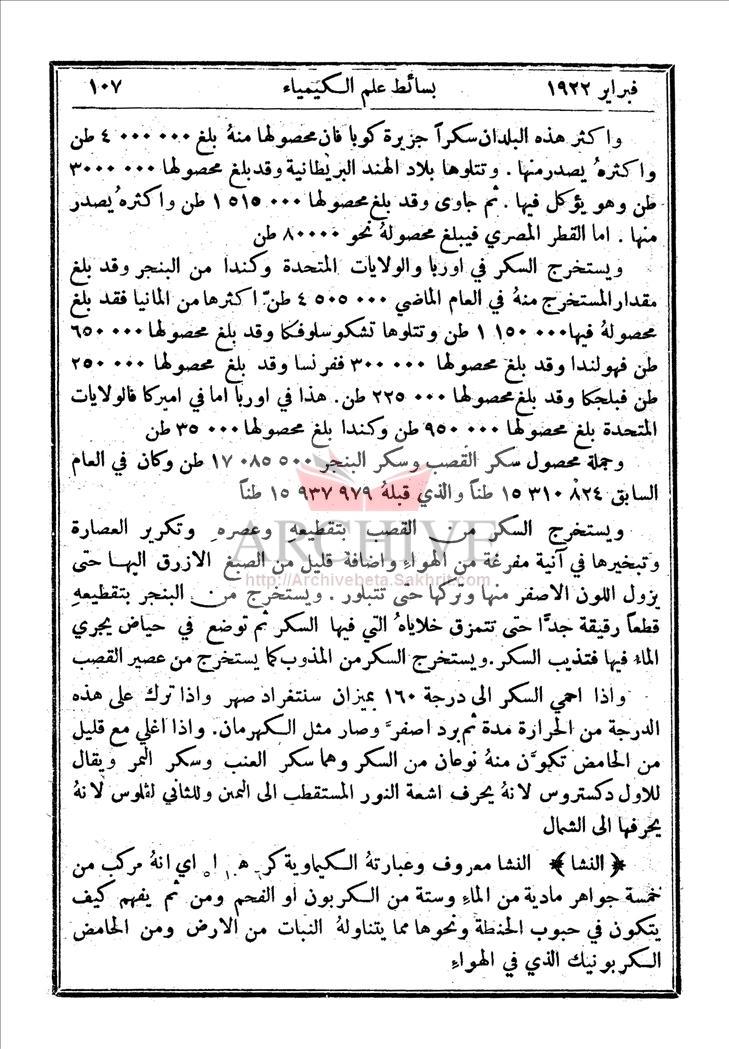 فبراير ١٩٢٢ بسائط علم الكيمياء ١٠٧
واكثر هذه البلدان سكراً جزيرة كوبا فان محصولها منهُ بلغ ٠٠٠ ٠٠٠ ٤ طن
واكثرهُ يصدر منها . وتتلوها بلاد الهند البريطانية وقد بلغ محصولها ٠٠٠ ٣٠٠٠
طن وهو يؤكل فيها . ثم جاوى وقد بلغ محصولها ٠٠٠ ٥١٥ ١ طن واكثرهُ يصدر
منها . اما القطر المصري فيبلغ محصولهُ نحو ٨٠٠٠٠ طن
ويستخرج السكر في اوربا والولايات المتحدة وكندا من البنجر وقد بلغ
مقدار المستخرج منهُ في العام الماضي ٠٠٠ ٥٠٥ ٤ طن اكثرها من المانيا فقد بلغ
محصولهُ فيها ٠٠٠ ١٥٠ ١ طن وتتلوها تشكوسلوفكا وقد بلغ محصولها ٠٠٠ ٦٥٠
طن فهولندا وقد بلغ محصولها ٠٠٠ ٣٠٠ ففرنسا وقد بلغ محصولها ٠٠٠ ٢٥٠
طن فبلجكا وقد بلغ محصولها ٠٠٠ ٢٢٥ طن. هذا في اوربا اما في اميركا فالولايات
المتحدة بلغ محصولها ٠٠٠ ٩٥٠ طن وكندا بلغ محصولها ٠٠٠ ٣٥ طن
وجملة محصول سكر القصب وسكر البنجر ٥٠٠ ٠٨٥ ١٧ طن وكان في العام
السابق ٨٢٤ ٣١٠ ١٥ طناً والذي قبلهُ ٩٧٩ ٩٣٧ ١٥ طناً
ARCHIVE
ويستخرج السكر من القصب بتقطيعهِ وعصرهِ وتكرير العصارة
وتبخيرها في آنية مفرغة من الهواءِ واضافة قليل من الصبغ الازرق اليها حتى
http://Archivebeta.Sakhrit.com
يزول اللون الاصفر منها وتركها حتى تتبلور . ويستخرج من البنجر بتقطيعهِ
قطعاً رقيقة جدًّا حتى تتمزق خلاياهُ التي فيها السكر ثم توضع في حياض يجري
الماءُ فيها فتذيب السكر. ويستخرج السكر من المذوب كما يستخرج من عصير القصب
واذا احمي السكر الى درجة ١٦٠ بميزان سنتغراد صهر واذا ترك على هذه
الدرجة من الحرارة مدة ثم برد اصفرَّ وصار مثل الكهرمان. واذا اغلي مع قليل
من الحامض تكوَّن منهُ نوعان من السكر وهما سكر العنب وسكر الثمر ويقال
للاول دكستروس لانهُ يحرف اشعة النور المستقطب الى اليمين وللثاني لئلوس لانهُ
يحرفها الى الشمال
﴿النشا﴾ النشا معروف وعبارتهُ الكيماوية اي انهُ مركب من
خمسة جواهر مادية من الماءِ وستة من الكربون او الفحم ومن ثم يفهم كيف
يتكون في حبوب الحنطة ونحوها مما يتناولهُ النبات من الارض ومن الحامض
الكربونيك الذي في الهواءِ